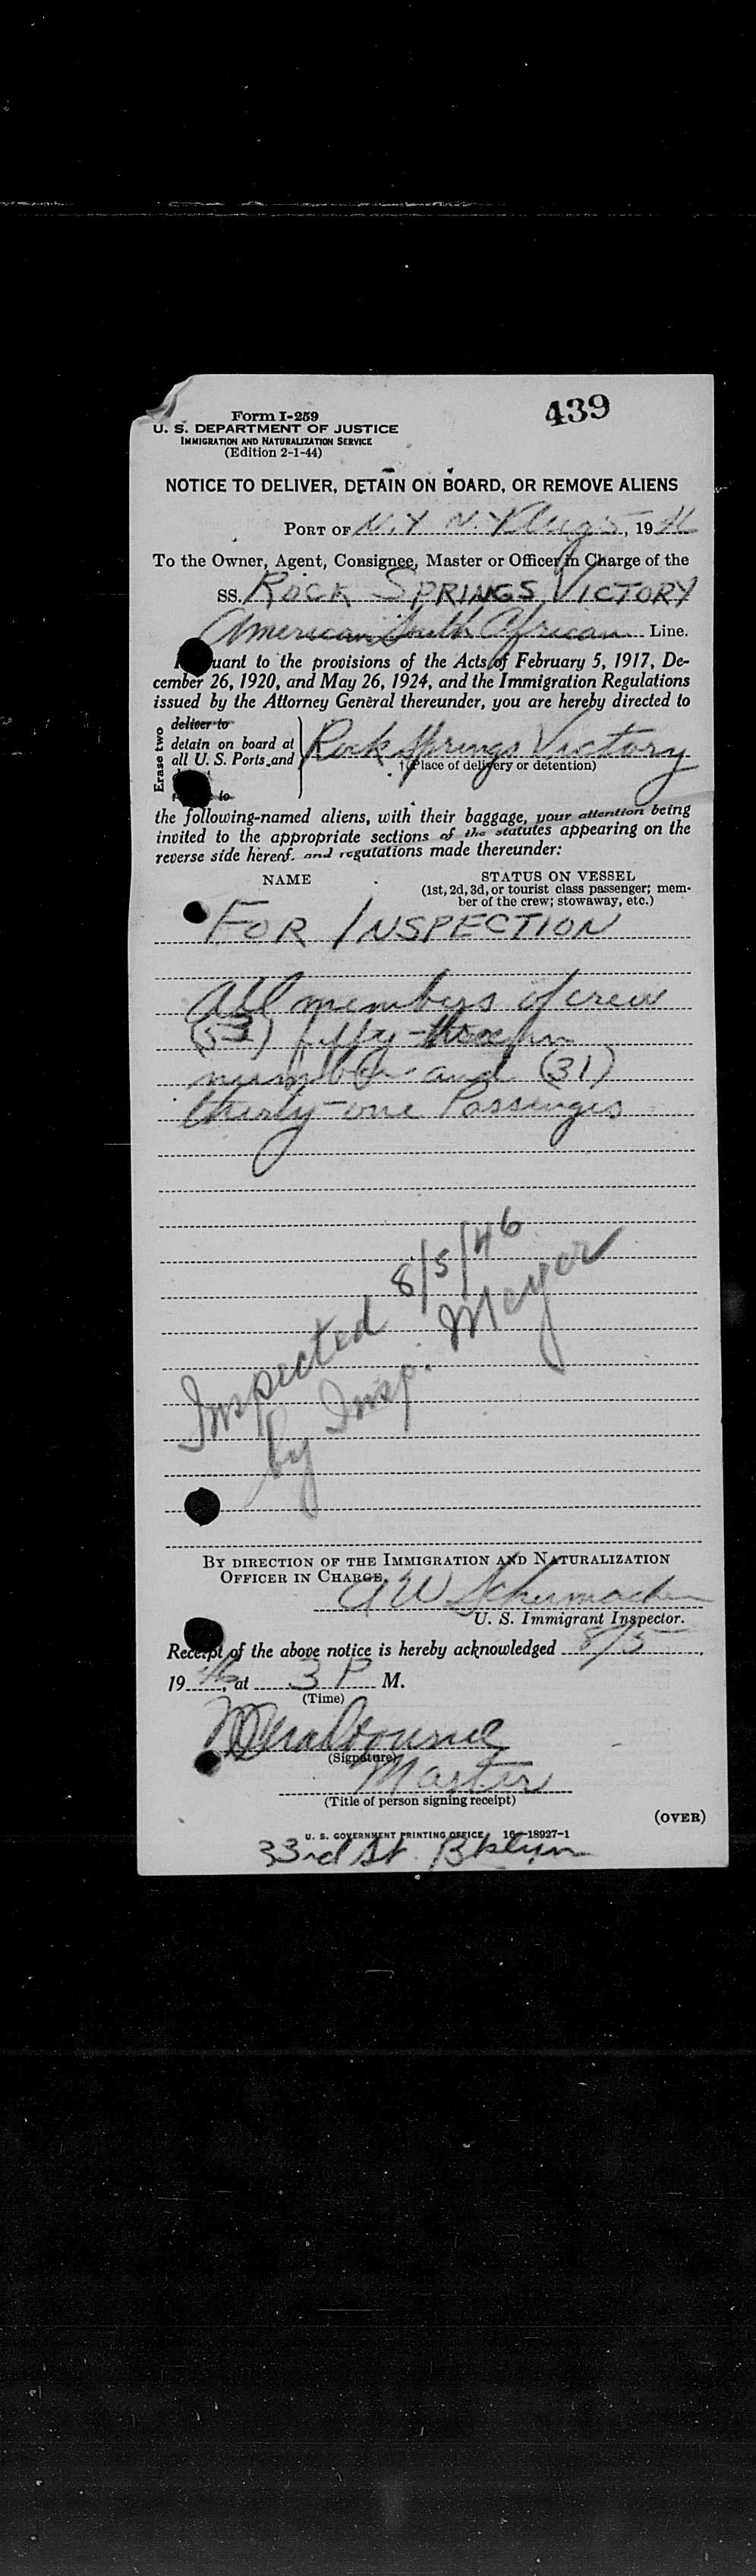 439
Form I-259
U. S. DEPARTMENT OF JUSTICE
IMMIGRATION AND NATURALIZATION SERVICE
(Edition 2-1-44)
NOTICE TO DELIVER, DETAIN ON BOARD, OR REMOVE ALIENS
PORT OF N.Y. N.Y. Aug 5, 19 46
To the Owner, Agent, Consignee, Master or Officer in Charge of the
SS. ROCK SPRINGS VICTORY
American South African Line.
uant to the provisions of the Acts of February 5, 1917, De-
cember 26, 1920, and May 26, 1924, and the Immigration Regulations
issued by the Attorney General thereunder, you are hereby directed to
Erase two
deliver to
detain on board at
all U. S. Ports and
to
Rock Springs Victory
†(Place of delivery or detention)
the following-named aliens, with their baggage, your attention being
invited to the appropriate sections of the statutes appearing on the
reverse side hereof. and regulations made thereunder:
NAME STATUS ON VESSEL
(1st, 2d, 3d, or tourist class passenger; mem-
ber of the crew; stowaway, etc.)
FOR INSPECTION
All members of crew
(53) fifty-three in
number and (31)
thirty-one Passengers
Inspected 8/5/46
by Insp. Meyer
BY DIRECTION OF THE IMMIGRATION AND NATURALIZATION
OFFICER IN CHARGE.
A W Schumacher
U. S. Immigrant Inspector.
Receipt of the above notice is hereby acknowledged 8/5,
19 46, at 3 P M.
(Time)
(Signature)
Master
(Title of person signing receipt)
(OVER)
U. S. GOVERNMENT PRINTING OFFICE 16-18927-1
33rd St. Bklyn